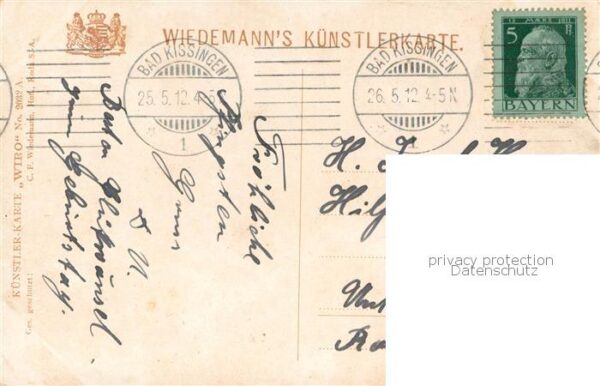 WIEDEMANN'S KÜNSTLERKARTE.
BAD KISSINGEN
25.5.12.4-
1
BAD KISSINGEN
26.5.12 4-5N
12 MÄRZ 1911
5 Pf
BAYERN
KÜNSTLER-KARTE „WIRO" No. 2692 A
C. F. Wiedemann, Hofl., Roda S.-A.
Ges. geschützt:
Fröhliche
Pfingsten
Besten Glückwunsch
zum Geburtstag.
H.
Hil
Unt
privacy protection
Datenschutz